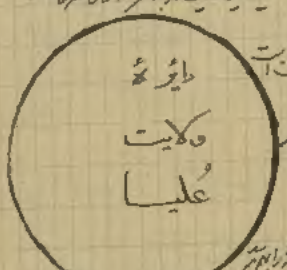 دائرۂ
ولایت
عُلیا